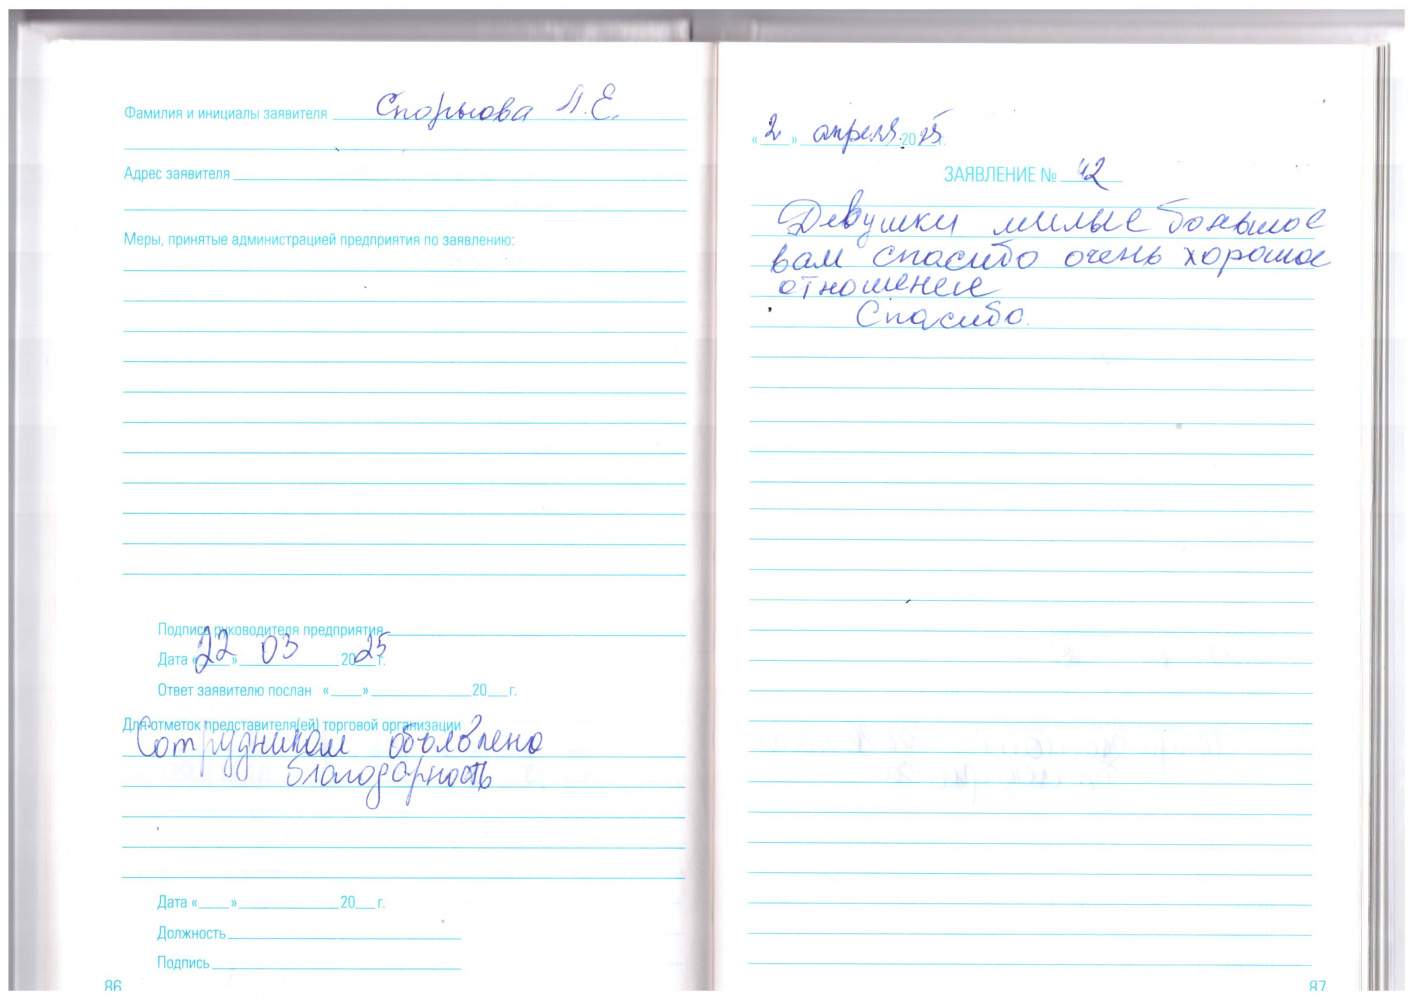 Фамилия и инициалы заявителя Спорысова Л.Е.
Адрес заявителя
Меры, принятые администрацией предприятия по заявлению:
Подпись руководителя предприятия
Дата «22» 03 2025 г.
Ответ заявителю послан «___» ______ 20__ г.
Для отметок представителя(ей) торговой организации
Сотрудникам объявлена
благодарность
Дата «___» ______ 20__ г.
Должность
Подпись
86
«2» апреля 2025 г.
ЗАЯВЛЕНИЕ № 42
Девушки милые большое
вам спасибо очень хорошое
отношение
Спасибо.
87